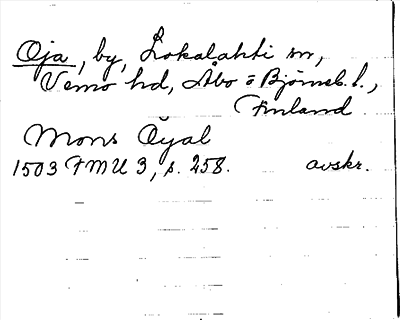 Oja, by, Lokalahti sn,
Vemo hd, Åbo o Björneb. l.,
Finland
Mons Öyal
1503 FMU 3, s. 258. avskr.